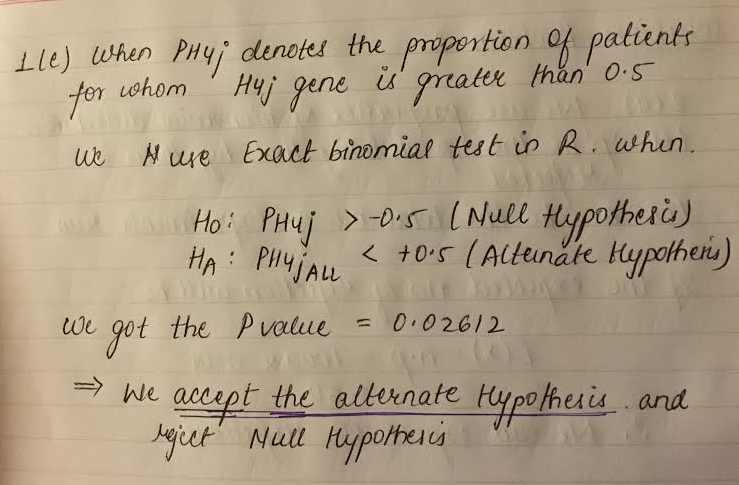 1(e) When PH4j denotes the proportion of patients
for whom H4j gene is greater than 0.5
We use Exact binomial test in R. when.
H0: PH4j > -0.5 (Null Hypothesis)
HA: PH4jALL < +0.5 (Alternate Hypothesis)
We got the P value = 0.02612
⇒ We accept the alternate Hypothesis. and
reject Null Hypothesis